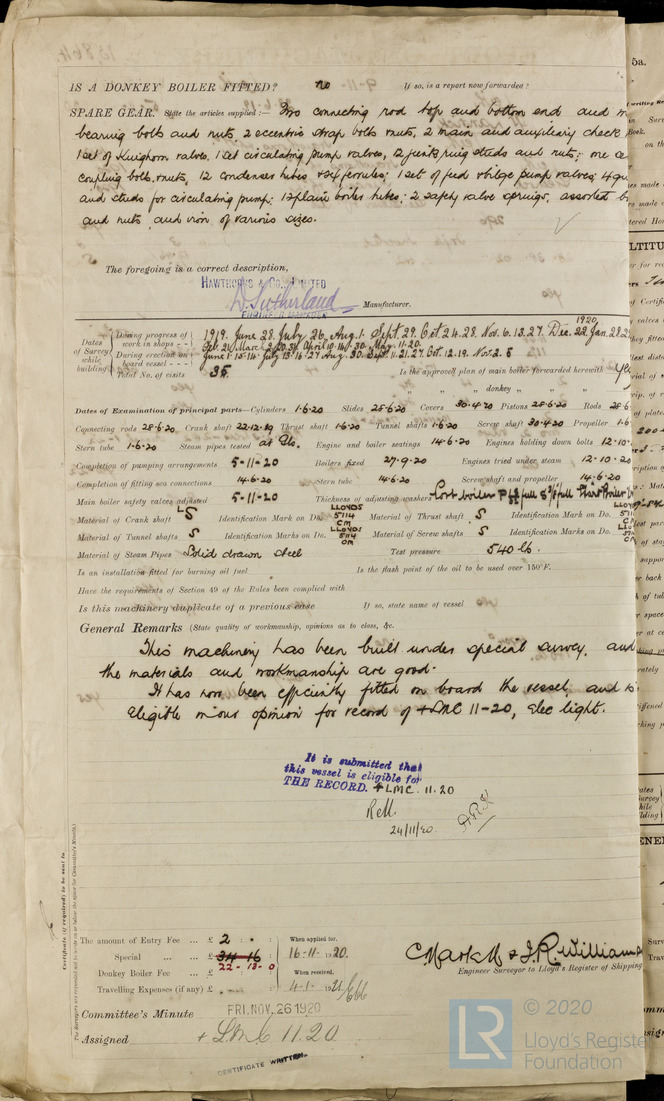 IS A DONKEY BOILER FITTED? no If so, is a report now forwarded?
SPARE GEAR. State the articles supplied:— Two connecting rod top and bottom end and
bearing bolts and nuts, 2 eccentric strap bolts & nuts, 2 main and auxiliary check
1 set of Kinghorn valves. 1 set circulating pump valves, 12 junk ring studs and nuts; one
coupling bolts & nuts, 12 condenser tubes & ferrules; 1 set of feed & bilge pump valves; 4
and studs for circulating pump; 12 plain boiler tubes; 2 safety valve springs, assorted
and nuts and iron of various sizes.
The foregoing is a correct description,
HAWTHORNS & Co., LIMITED
D. Sutherland Manufacturer.
Dates of Survey while building
During progress of work in shops - - 1919. June 28. July 26. Aug. 1. Sept. 29. Oct. 24. 28. Nov. 6. 13. 27. Dec. 22. 1920 Jan.
During erection on board vessel - - - June 1. 15. 16. July 13. 16. 27. Aug. 30. Sept. 11. 21. 27. Oct. 12. 19. Nov. 2. 5
Total No. of visits 35. Is the approved plan of main boiler forwarded herewith
" " " donkey " " "
Dates of Examination of principal parts—Cylinders 1-6-20 Slides 28-6-20 Covers 30-4-20 Pistons 28-6-20 Rods
Connecting rods 28-6-20 Crank shaft 22-12-19 Thrust shaft 1-6-20 Tunnel shafts 1-6-20 Screw shaft 30-4-20 Propeller
Stern tube 1-6-20 Steam pipes tested Engine and boiler seatings 14-6-20 Engines holding down bolts 12-10-
Completion of pumping arrangements 5-11-20 Boilers fixed 27-9-20 Engines tried under steam 12-10-20
Completion of fitting sea connections 14-6-20 Stern tube 14-6-20 Screw shaft and propeller 14-6-20
Main boiler safety valves adjusted 5-11-20 Thickness of adjusting washers
Material of Crank shaft S Identification Mark on Do. LLOYDS 5114 CM Material of Thrust shaft S Identification Mark on Do.
Material of Tunnel shafts S Identification Marks on Do. LLOYDS 5114 CM Material of Screw shafts S Identification Marks on Do.
Material of Steam Pipes Solid drawn steel Test pressure 540 lb.
Is an installation fitted for burning oil fuel Is the flash point of the oil to be used over 150°F.
Have the requirements of Section 49 of the Rules been complied with
Is this machinery duplicate of a previous case If so, state name of vessel
General Remarks (State quality of workmanship, opinions as to class, &c.
This machinery has been built under special survey, and
the materials and workmanship are good.
It has now been efficiently fitted on board the vessel, and is
Eligible in our opinion for record of +LMC 11-20, Elec light.
It is submitted that
this vessel is eligible for
THE RECORD. + LMC. 11.20
24/11/20
Certificate (if required) to be sent to
The amount of Entry Fee ... £ 2 : - : When applied for,
Special ... £ 34-16 16-11-1920.
Donkey Boiler Fee ... £ 22-13-0 When received,
Travelling Expenses (if any) £ 4-1-1921
Engineer Surveyor to Lloyd's Register of Shipping
Committee's Minute FRI. NOV. 26 1920
Assigned + LMC 11.20
CERTIFICATE WRITTEN.
LR
© 2020
Lloyd's Registe
Foundation